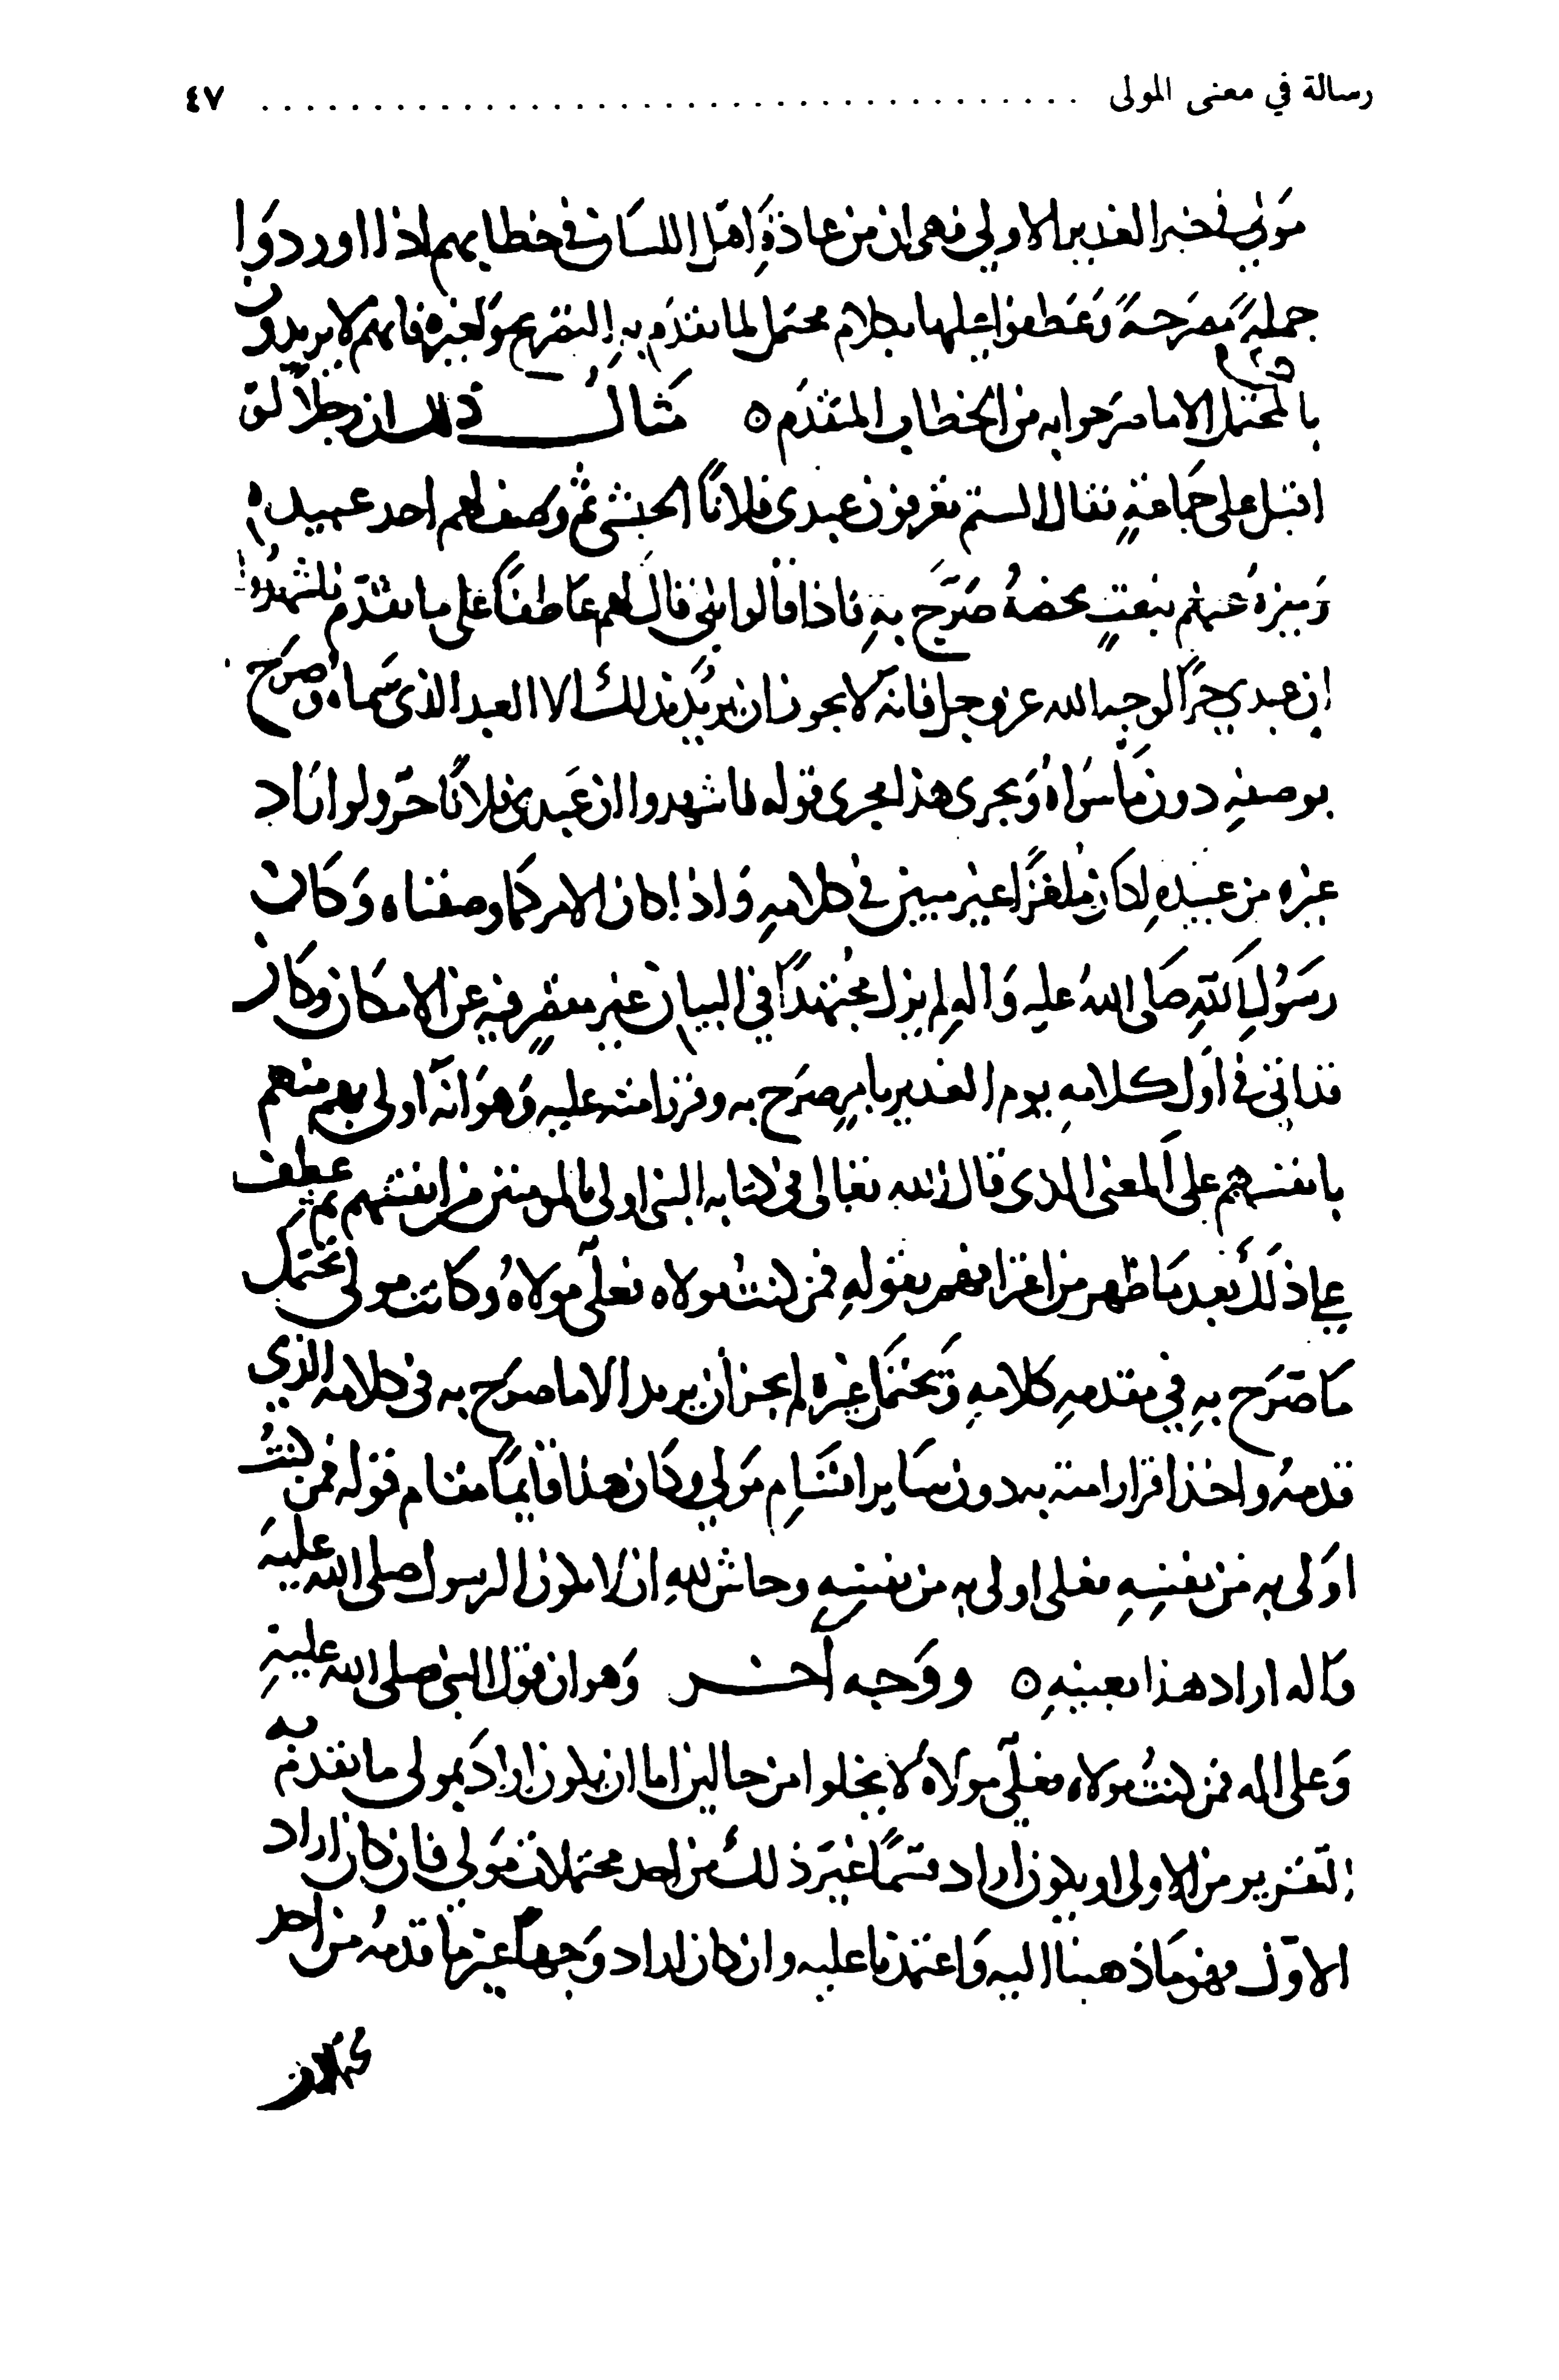 رسالة في معنى المولى ........ ٤٧
مولى في خبر الغدير الاولى فهي ان من عادة اهل اللسان في خطابهم اذا اوردوا
جملة مصرحة وعطفوا عليها بكلام محتمل لما تقدم به التصريح ولغيره فانهم لا يريدون
بالمحتمل الا ما صرحوا به من الخطاب المتقدم ٥ مثال ذلك ان رجلا لو
اقبل على جماعة فقال الستم تعرفون عبدي فلانا الحبشي ثم وصف لهم احد عبيده
وميزه عنهم بنعت يخصه صرح به فاذا قالوا بلى قال لهم عاطفا على ما تقدم فاشهدوا
ان عبدي حر لوجه الله عز وجل فانه لا يجوز ان يريد بذلك الا العبد الذي سماه وصرح
بوصفه دون ما سواه ويجري هذا مجرى قوله فاشهدوا ان عبدي فلانا حر ولو اراد
غيره من عبيده لكان ملغزا غير مبين في كلامه واذا كان الامر كما وصفناه وكان
رسول الله صلى الله عليه واله لم يزل مجتهدا في البيان غير مقصر فيه عن الامكان وكان
قد اتى في اول كلامه يوم الغدير بامر صرح به وقرر امته عليه وهو انه اولى بهم منهم
بانفسهم على المعنى الذي قال الله تعالى في كتابه النبي اولى بالمومنين من انفسهم ثم عطف
على ذلك بعد ما ظهر من اعترافهم بقوله فمن كنت مولاه فعلي مولاه وكانت مولى تحتمل
ما صرح به في مقدمه كلامه وتحتمل غيره لم يجز ان يريد الا ما صرح به في كلامه الذي
قدمه واخذ اقرار امته به دون ساير اقسام مولى وكان هذا قايما مقام قوله فمن كنت
اولى به من نفسه فعلي اولى به من نفسه وحاش لله ان لا يكون الرسول صلى الله عليه
واله اراد هذا بعينه ٥ ووجه اخر وهو ان قول النبي صلى الله عليه
وعلى اله فمن كنت مولاه فعلي مولاه لا يخلوا من حالين اما ان يكون اراد بمولى ما تقدم به
التقرير من الاولى او يكون اراد قسما غير ذلك من احد محتملات مولى فان كان اراد
الاول فهو ما ذهبنا اليه واعتمدنا عليه وان كان اراد وجها غير ما قدمه من احد